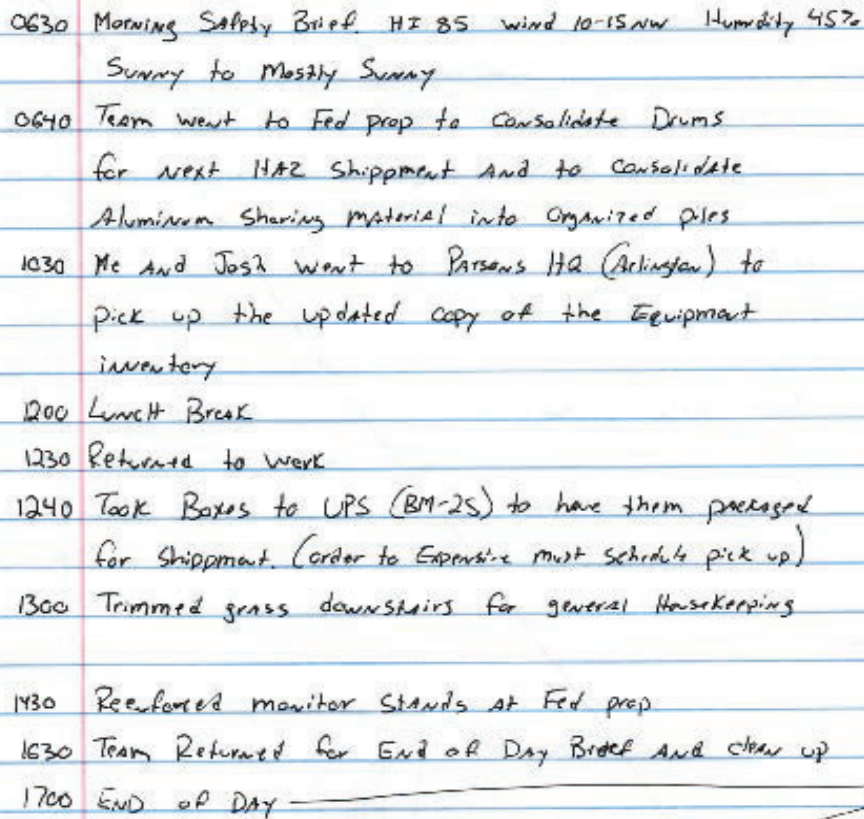 0630 Morning Safety Brief. HI 85 wind 10-15 NW Humidity 45%
Sunny to Mostly Sunny
0640 Team went to Fed prop to Consolidate Drums
for next HAZ Shippment And to Consolidate
Aluminum Sharing material into Organized piles
1030 Me And Josh went to Parsons HQ (Arlington) to
pick up the updated copy of the Equipment
inventory
1200 Lunch Break
1230 Returned to work
1240 Took Boxes to UPS (BM-25) to have them packaged
for shippment. (order to Expensive must schedule pick up)
1300 Trimmed grass downstairs for general Housekeeping
1430 Reenforced monitor Stands At Fed prop
1630 Team Returned for End of Day Brief And clean up
1700 END of DAY